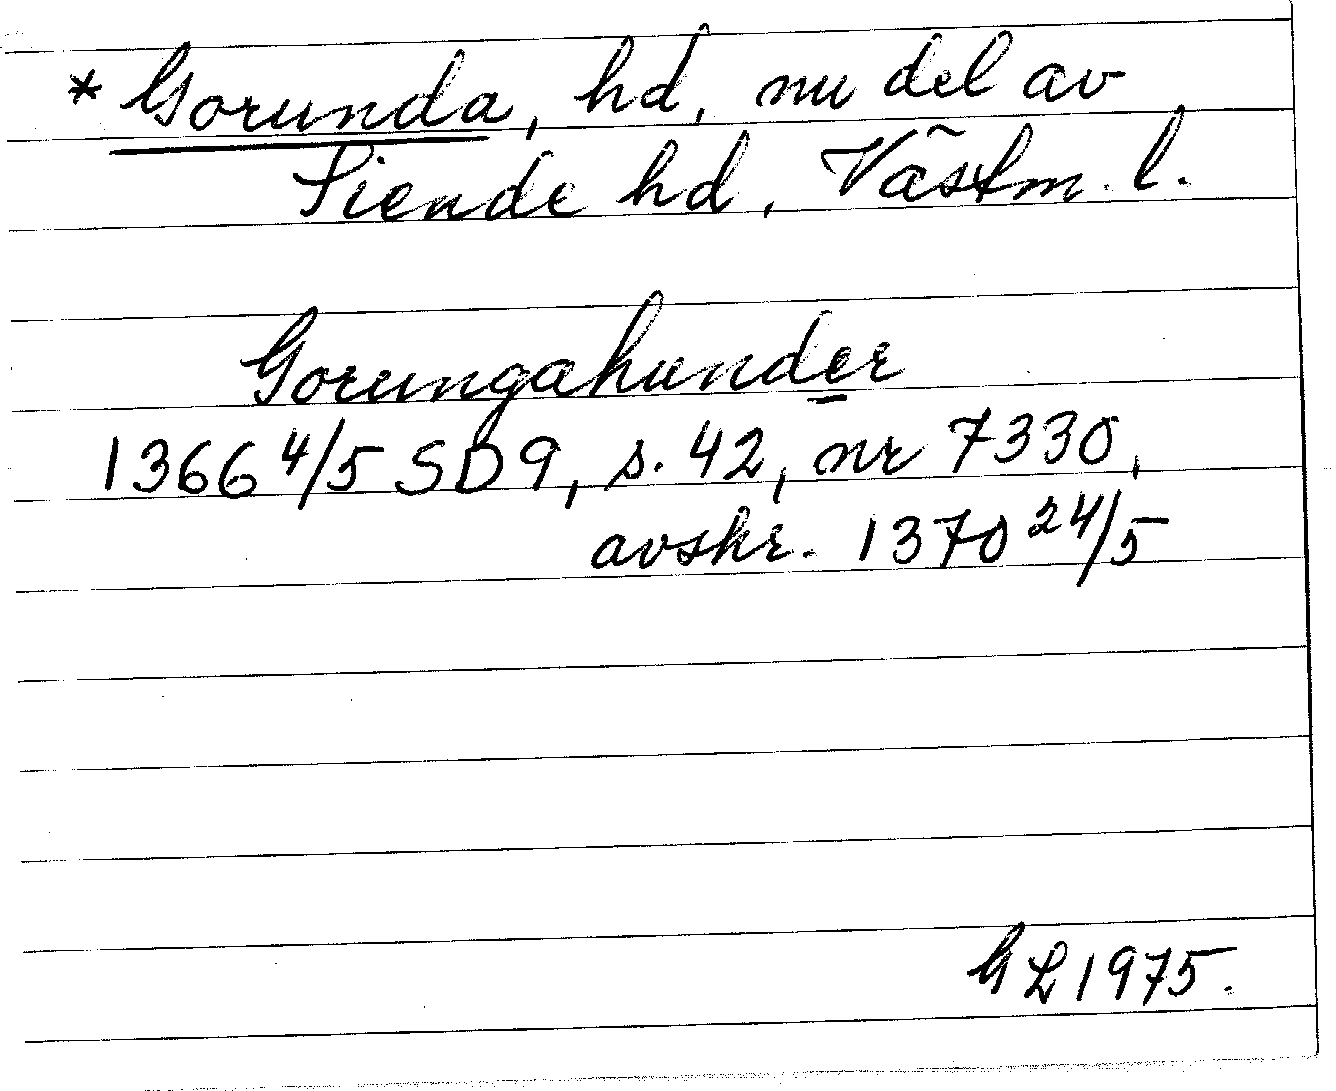 * Gorunda, hd, nu del av
Siende hd, Västm. l.
Gorungahunder
1366 4/5 SD9, s. 42, nr 7330,
avskr. 1370 24/5
GL 1975.